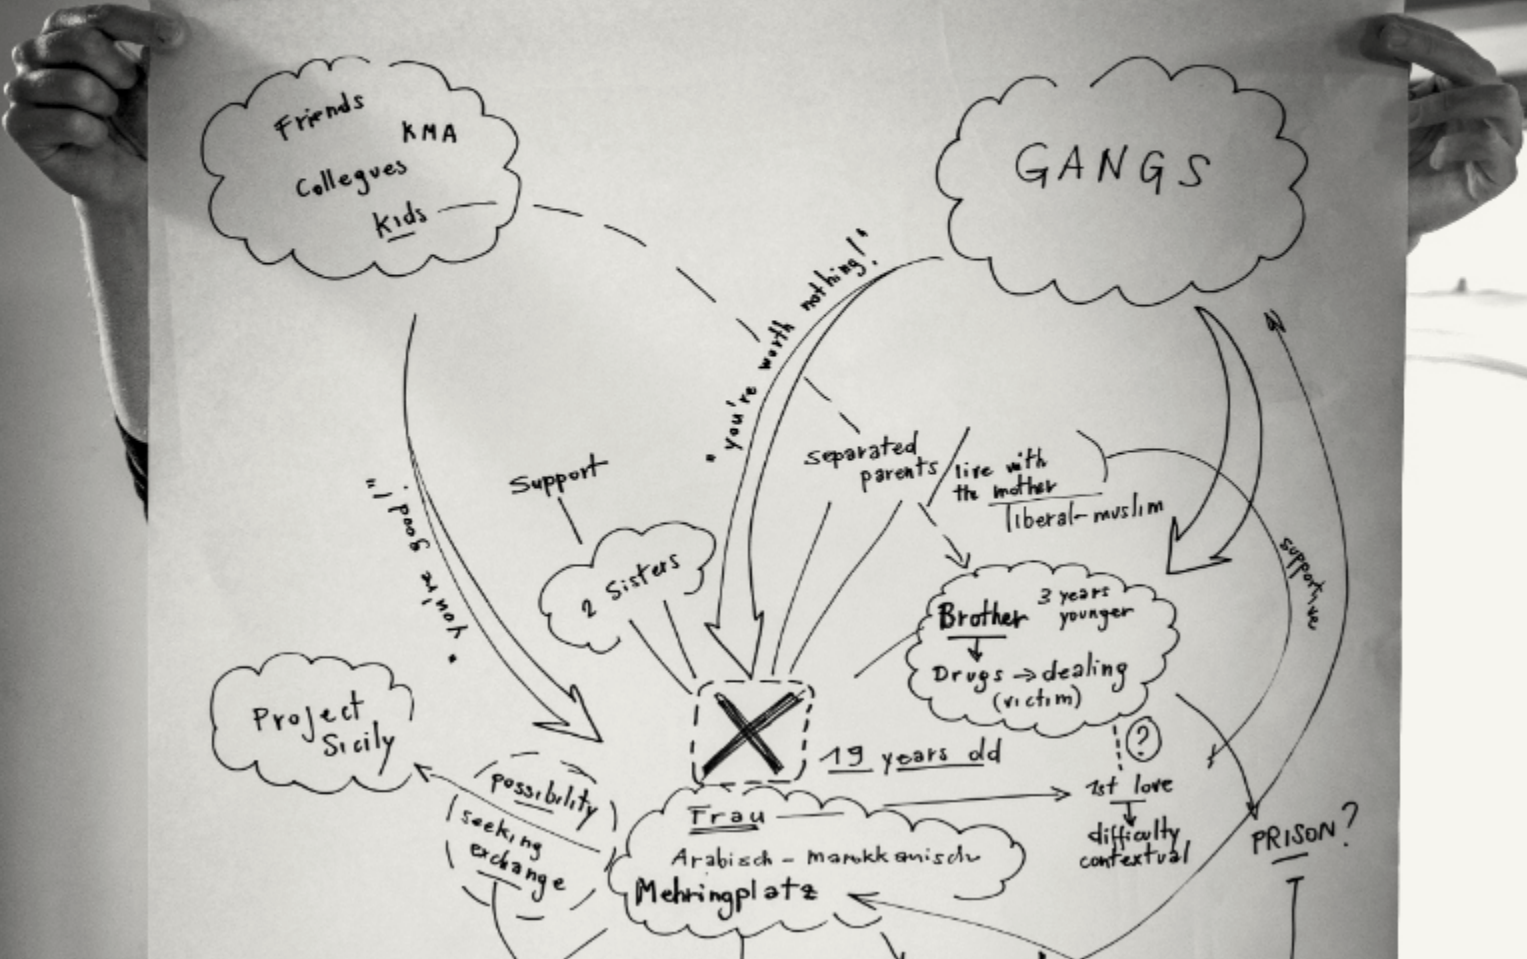 Friends
KMA
Collegues
Kids
GANGS
"you're worth nothing!"
"you're good!"
Support
2 Sisters
separated
parents
live with
the mother
liberal-muslim
supportive
Brother
3 years
younger
Drugs → dealing
(victim)
?
Project
Sicily
possibility
seeking
exchange
X
19 years old
Frau
Arabisch - marokkanisch
Mehringplatz
1st love
difficulty
contextual
PRISON?